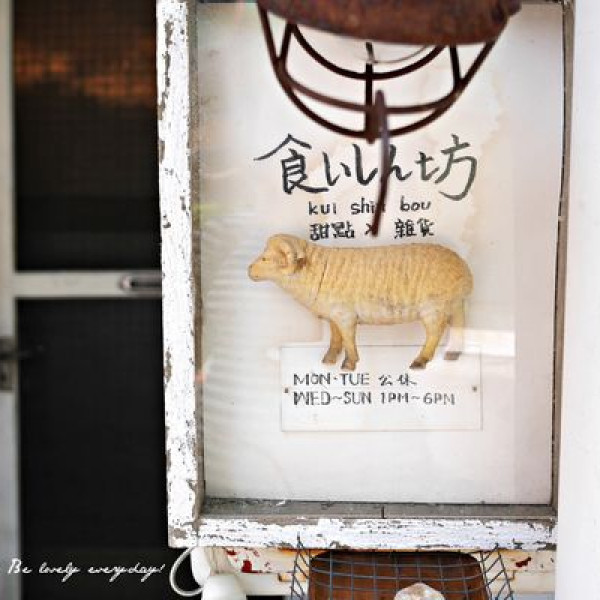 食いしん坊
kui shin bou
甜點 × 雜貨
MON·TUE 公休
WED~SUN 1PM~6PM
Be lovely everyday!